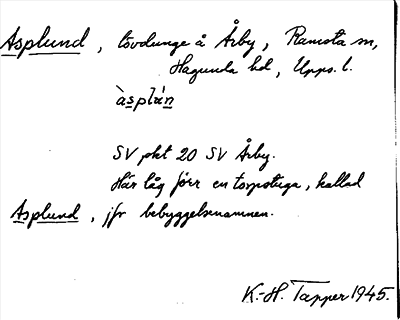 Asplund, lövdunge å Årby, Ramsta sn,
Hagunda hd, Upps. l.
àsplún
SV pkt 20 SV Årby.
Här låg förr en torpstuga, kallad
Asplund, jfr bebyggelsenamnen.
K.-H. Tapper 1945.